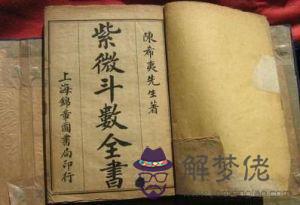 陳希夷先生著
紫微斗數全書
上海錦章圖書局印行
解梦佬